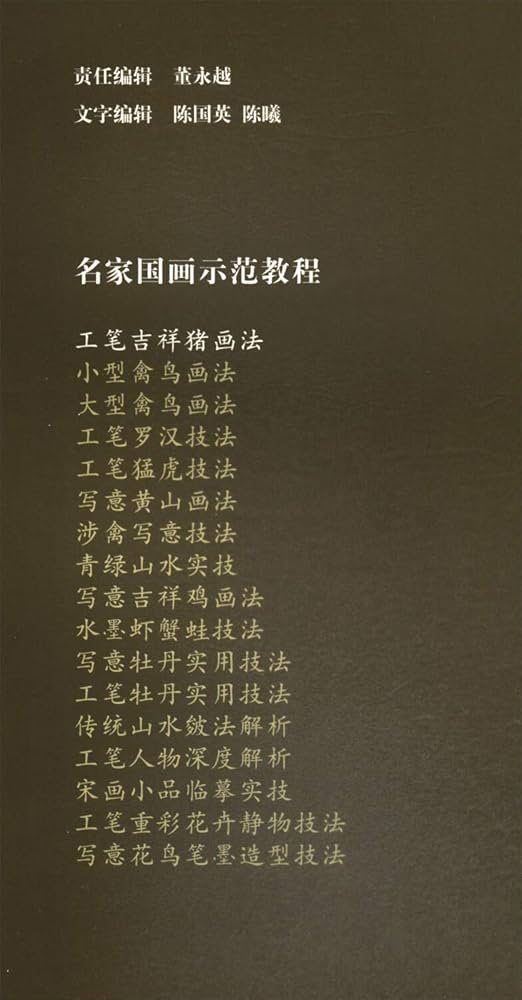 责任编辑 董永越
文字编辑 陈国英 陈曦
名家国画示范教程
工笔吉祥猪画法
小型禽鸟画法
大型禽鸟画法
工笔罗汉技法
工笔猛虎技法
写意黄山画法
涉禽写意技法
青绿山水实技
写意吉祥鸡画法
水墨虾蟹蛙技法
写意牡丹实用技法
工笔牡丹实用技法
传统山水皴法解析
工笔人物深度解析
宋画小品临摹实技
工笔重彩花卉静物技法
写意花鸟笔墨造型技法